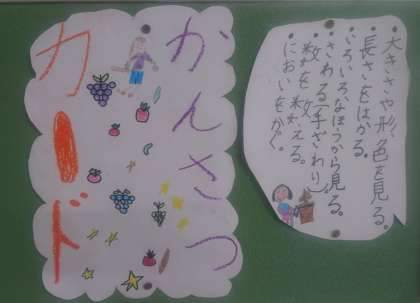 かんさつ
カード
・大きさや形、色を見る。
・長さをはかる。
・いろいろなほうから見る。
・さわる(手ざわり)。
・数を数える。
・においをかぐ。